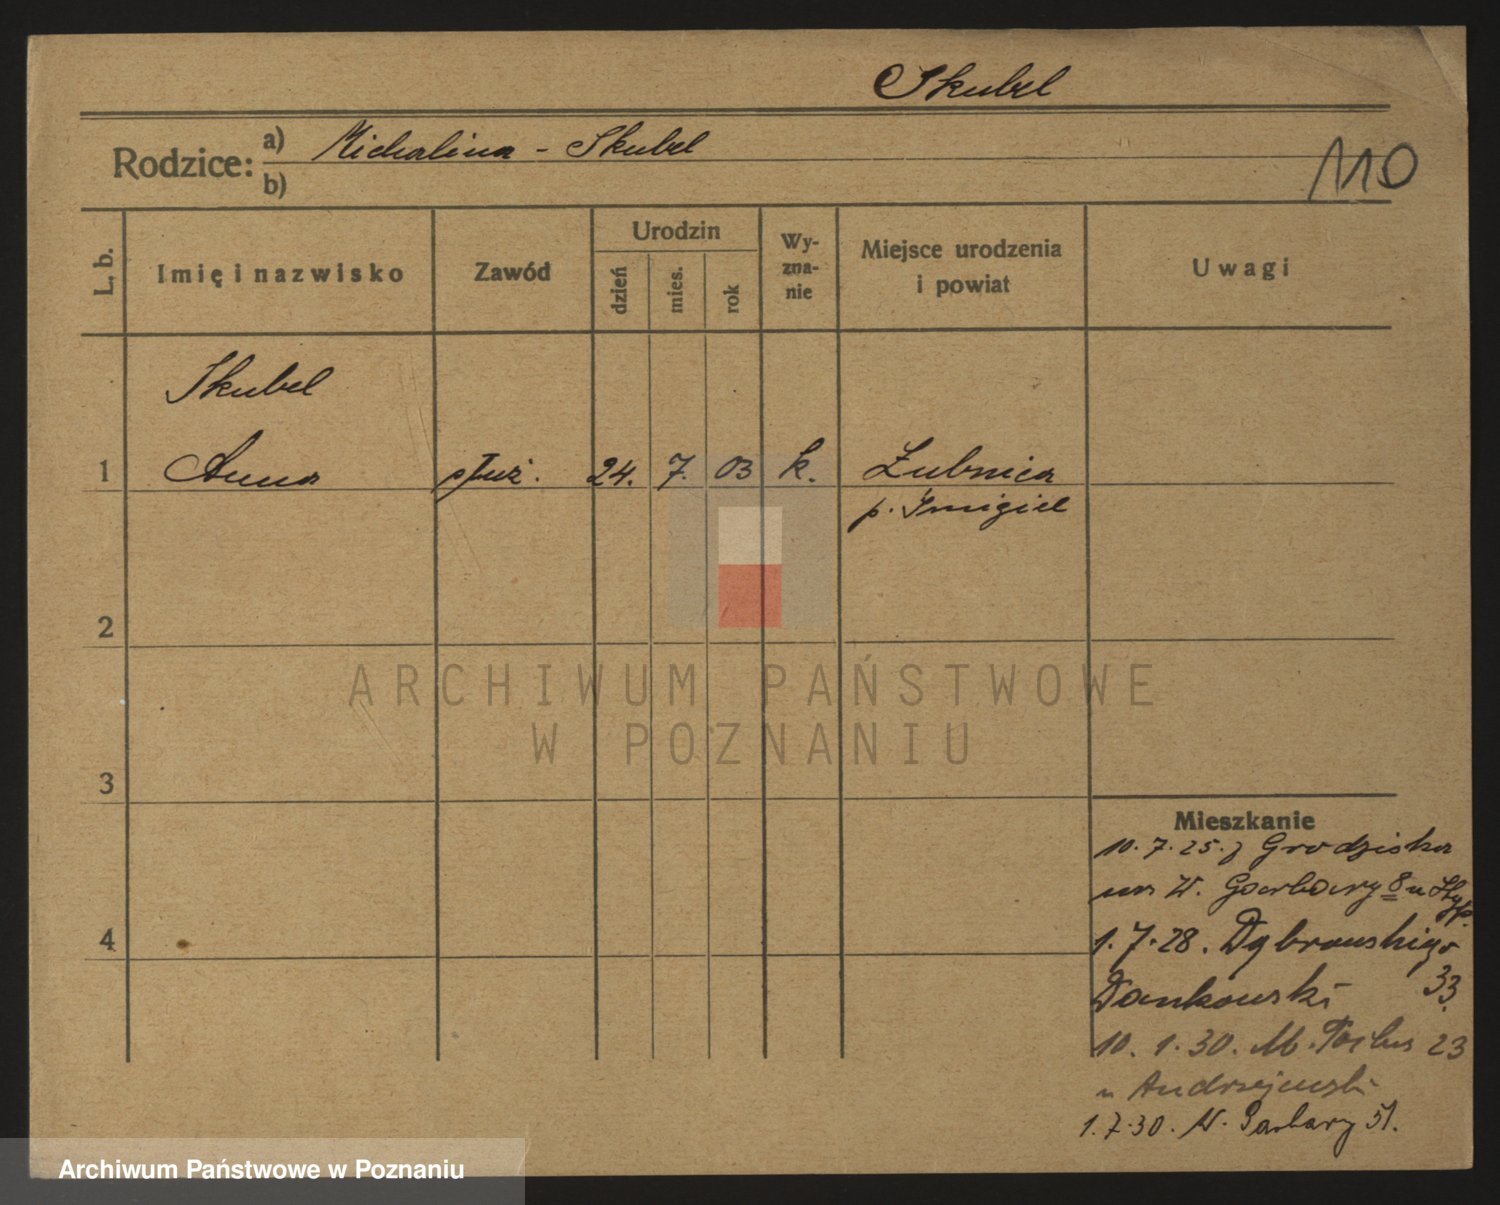 Skubel
Rodzice: a) Michalina - Skubel
b)
110
L. b. Imię i nazwisko Zawód Urodzin dzień mies. rok Wy-zna-nie Miejsce urodzenia i powiat Uwagi
Skubel
1 Anna służ. 24. 7. 03 k. Żubnica
p. Śmigiel
2
ARCHIWUM PAŃSTWOWE
W POZNANIU
3
Mieszkanie
10. 7. 25. z Grodziska
W. Garbary 8 u
4
1. 7. 28. Dąbrowskiego
Dankowski 33.
10. 1. 30. M. 23
u Andrzejewski
1. 7. 30. W. Garbary 51.
Archiwum Państwowe w Poznaniu